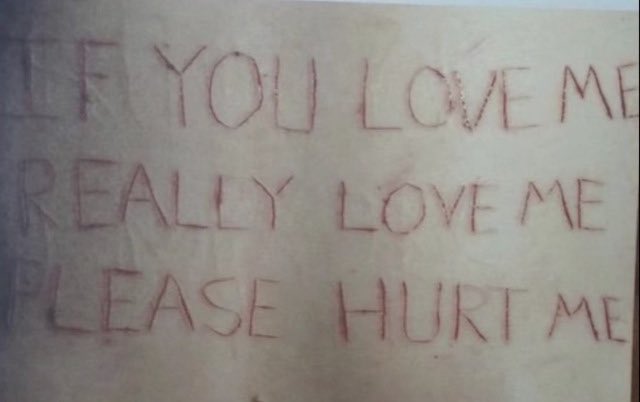 IF YOU LOVE ME
REALLY LOVE ME
PLEASE HURT ME